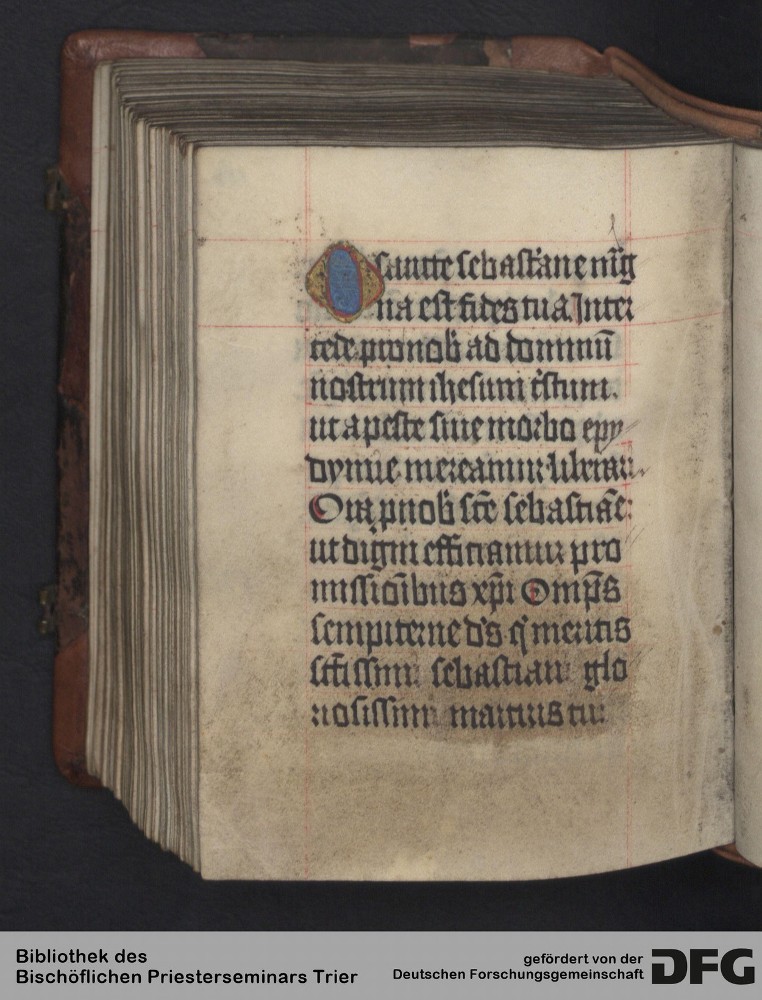 O sancte sebastiane mag
na est fides tua Inter
cede pro nob̄ ad dominū
nostrum ihesum cr̄istum.
ut a peste siue morbo epy
dymie mereamur liberari.
Ora p nob̄ sc̄e sebastiāe:
ut digni efficiamur pro
missiōibus xp̄i Omp̄s
sempiterne d's q' meritis
sc̄tissimi sebastiani glo
riosissimi martiris tui
Bibliothek des
Bischöflichen Priesterseminars Trier
gefördert von der
Deutschen Forschungsgemeinschaft
DFG